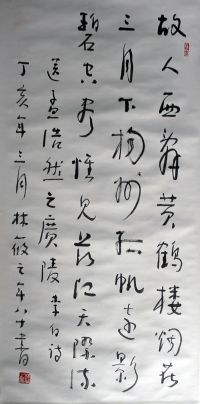 故人西辞黄鹤楼烟花
三月下扬州孤帆远影
碧空尽惟见长江天际流
送孟浩然之廣陵 李白诗
丁亥年三月林筱之年八十書